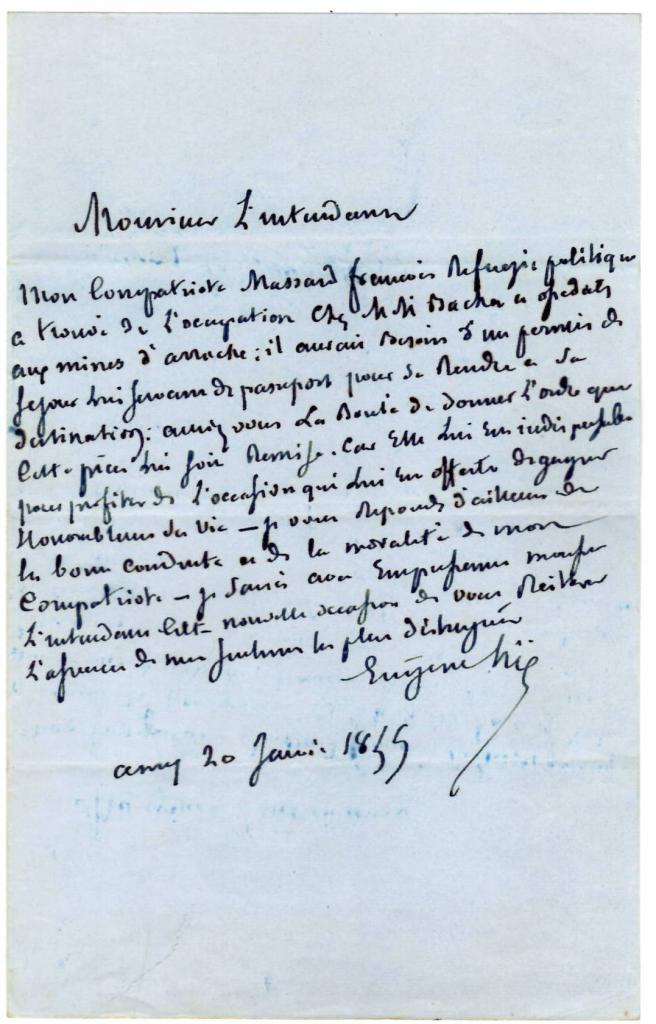 Monsieur L'intendant
Mon Compatriote Massard francois Refugié politique
a trouvé de L'occupation chez M M Bacha e
aux mines d' arrache; il aurait Besoin d'un permis de
sejour lui servant de passeport pour se Rendre a sa
destination: auriez vous La Bonté de donner L'ordre que
Cette pièce lui soit Remise. Car Elle lui est indispensable
pour profiter de L'occasion qui lui est offerte de gagner
Honorablement sa vie — je vous Reponds d'ailleurs de
la bonne conduite et de la moralité de mon
Compatriote — je saisis avec Empressement monsieur
L'intendant Cette nouvelle occasion de vous Reiterer
L'assurance de mes sentimens les plus distingués
Eugène Süe
annecy 20 Janvier 1855